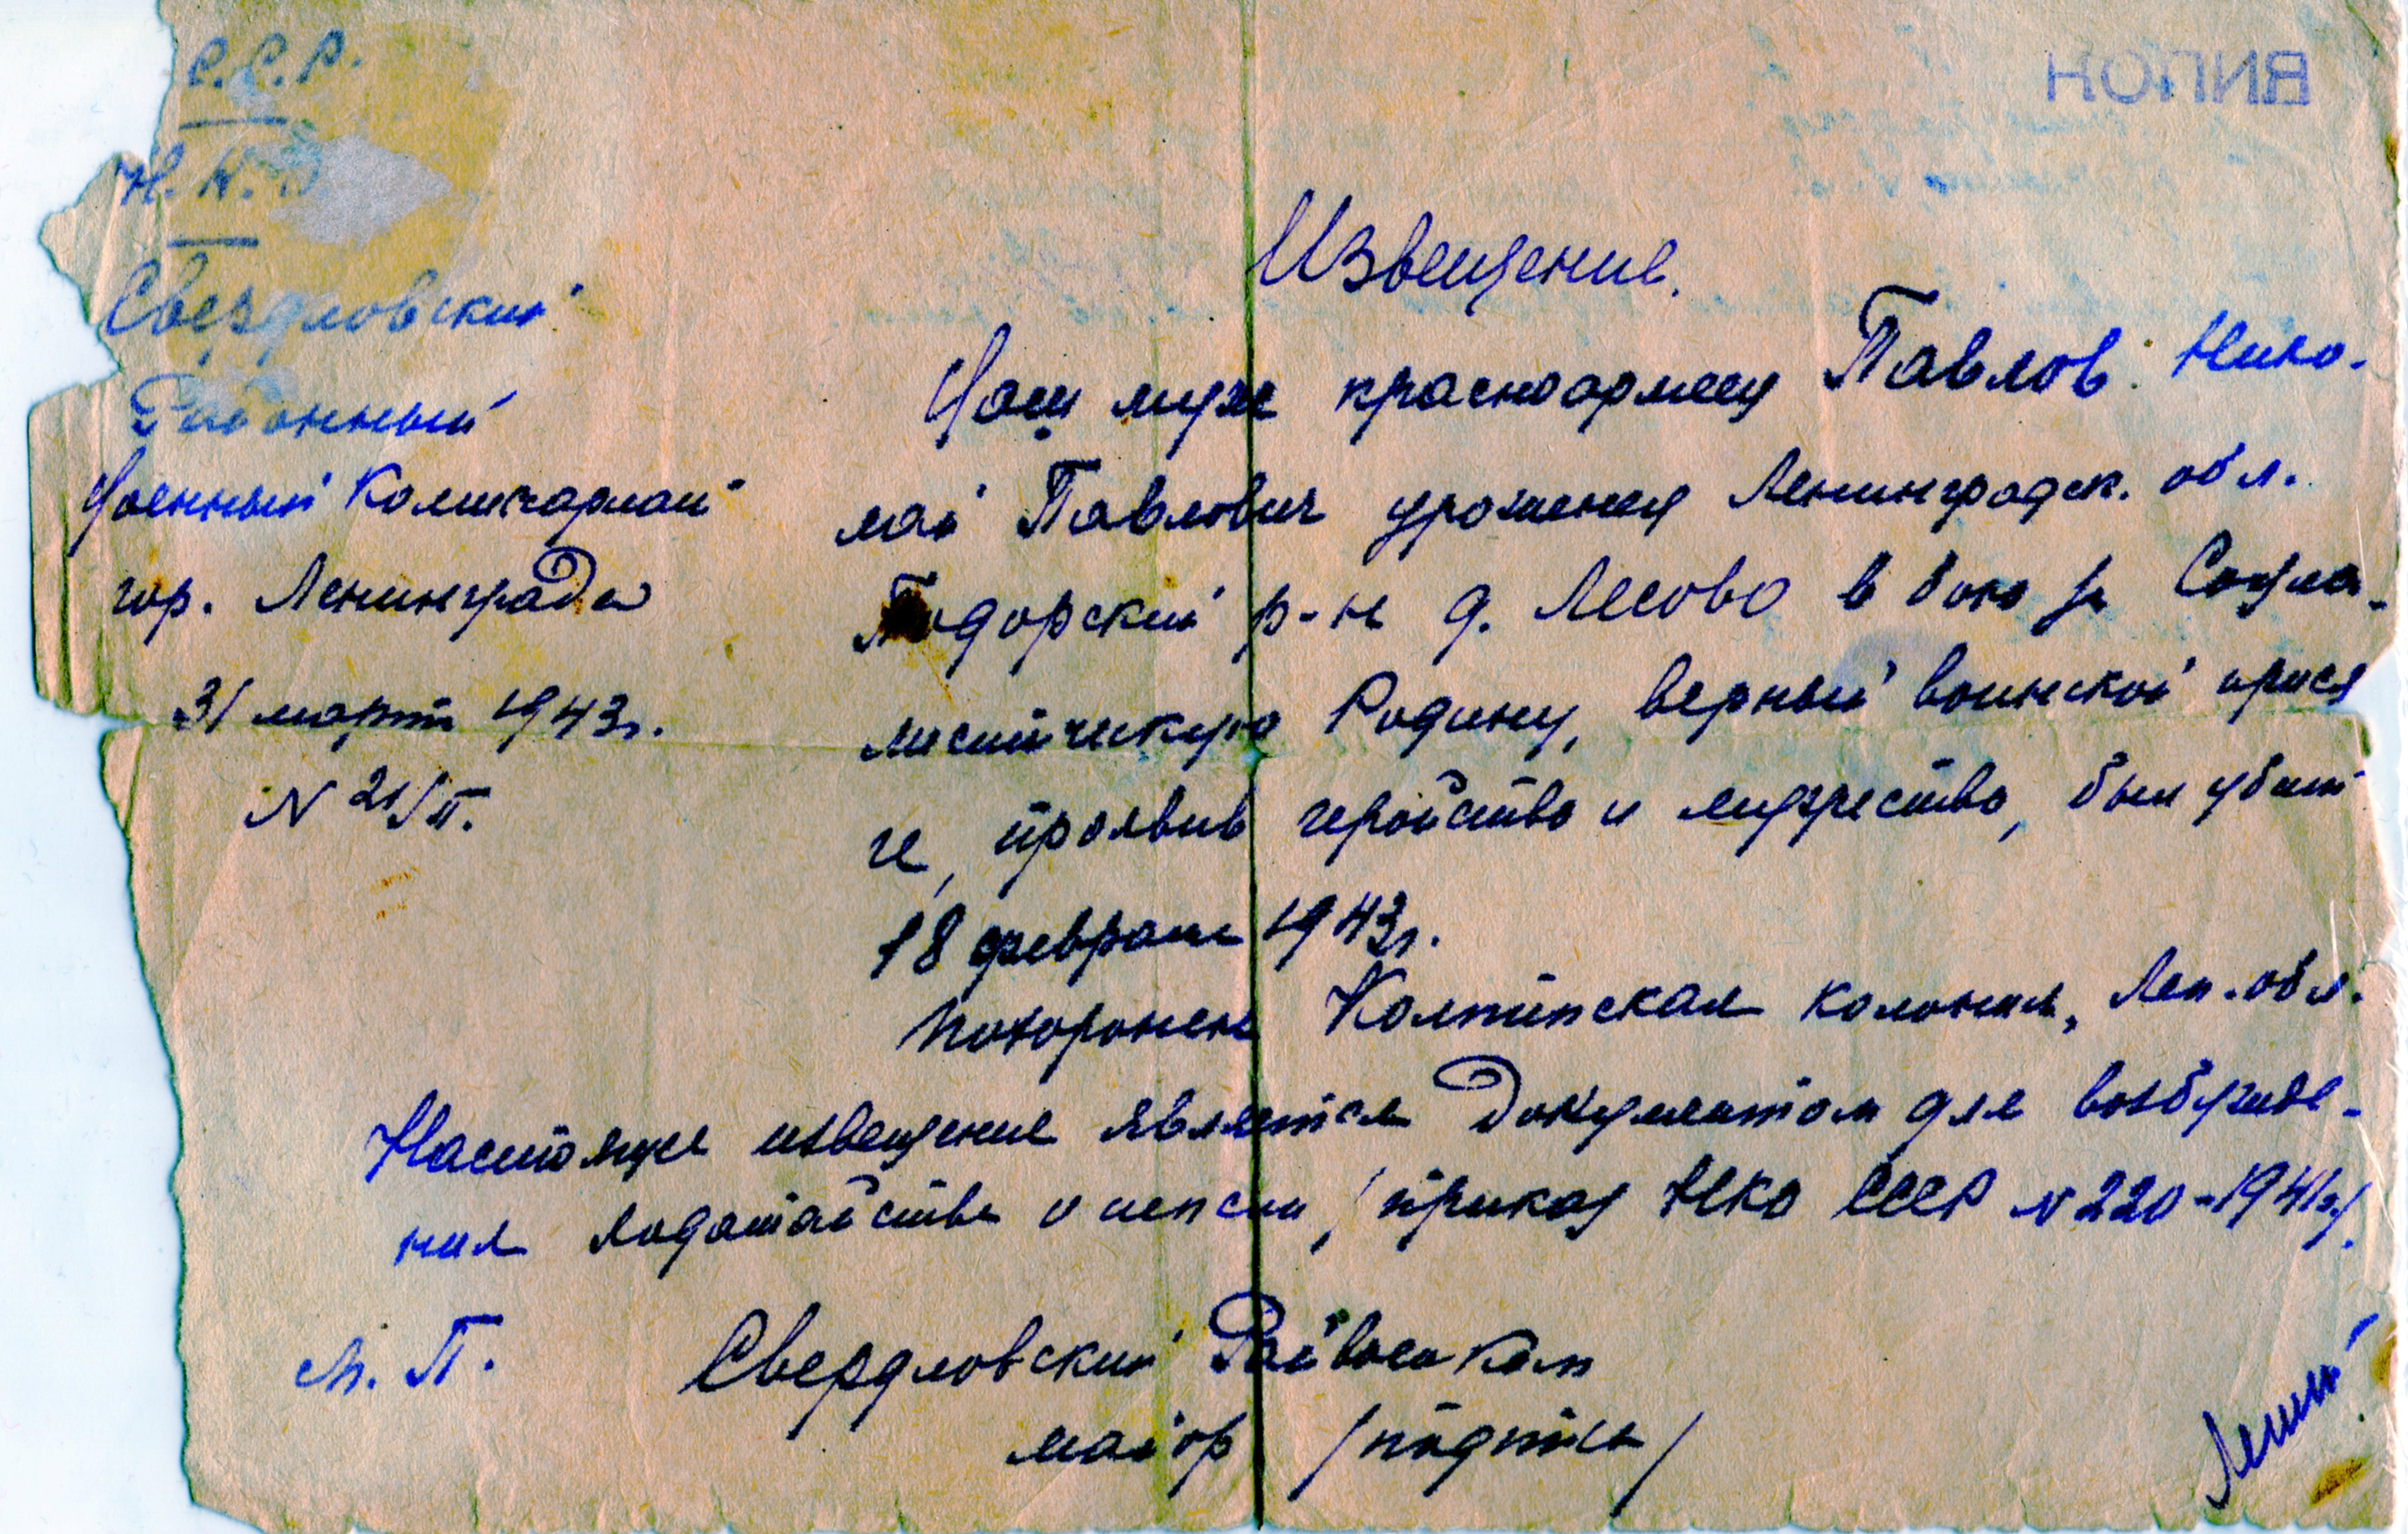 С.С.Р.
Н.К.О
Свердловский
Районный
Военный Комиссариат
гор. Ленинграда
31 марта 1943г.
N 21/П.
КОПИЯ
Извещение.
Ваш муж красноармеец Павлов Нико-
лай Павлович уроженец Ленинградск. обл.
Подорский р-н д. Лесово в бою за Социа-
листическую Родину, верный воинской прися
ге, проявив геройство и мужество, был убит
18 февраля 1943г.
Похоронен Колпинская колония, Лен. обл.
Настоящее извещение является документом для возбужде-
ния ходатайства о пенсии /приказ НКО СССР N 220-1941г./
М. П. Свердловский Райвоенком
майор /подпись/